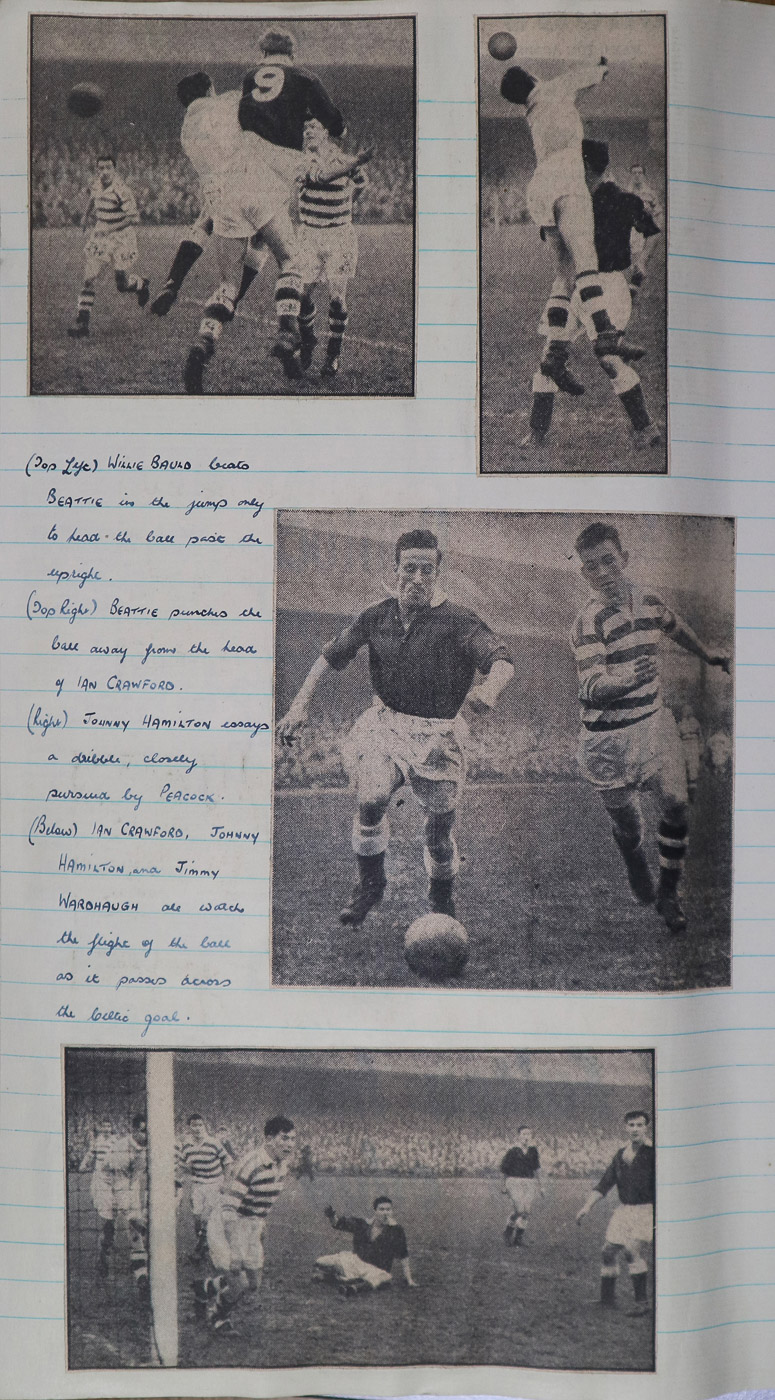 9
(Top Left) WILLIE BAULD beats
BEATTIE in the jump only
to head the ball past the
upright.
(Top Right) BEATTIE punches the
ball away from the head
of IAN CRAWFORD.
(Right) JOHNNY HAMILTON essays
a dribble, closely
pursued by PEACOCK.
(Below) IAN CRAWFORD, JOHNNY
HAMILTON, and Jimmy
WARDHAUGH all watch
the flight of the ball
as it passes across
the Celtic goal.